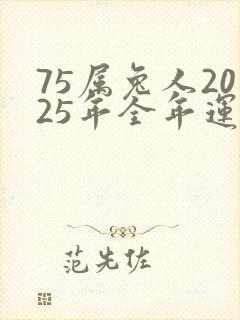 75属兔人20
25年全年運
范先佐